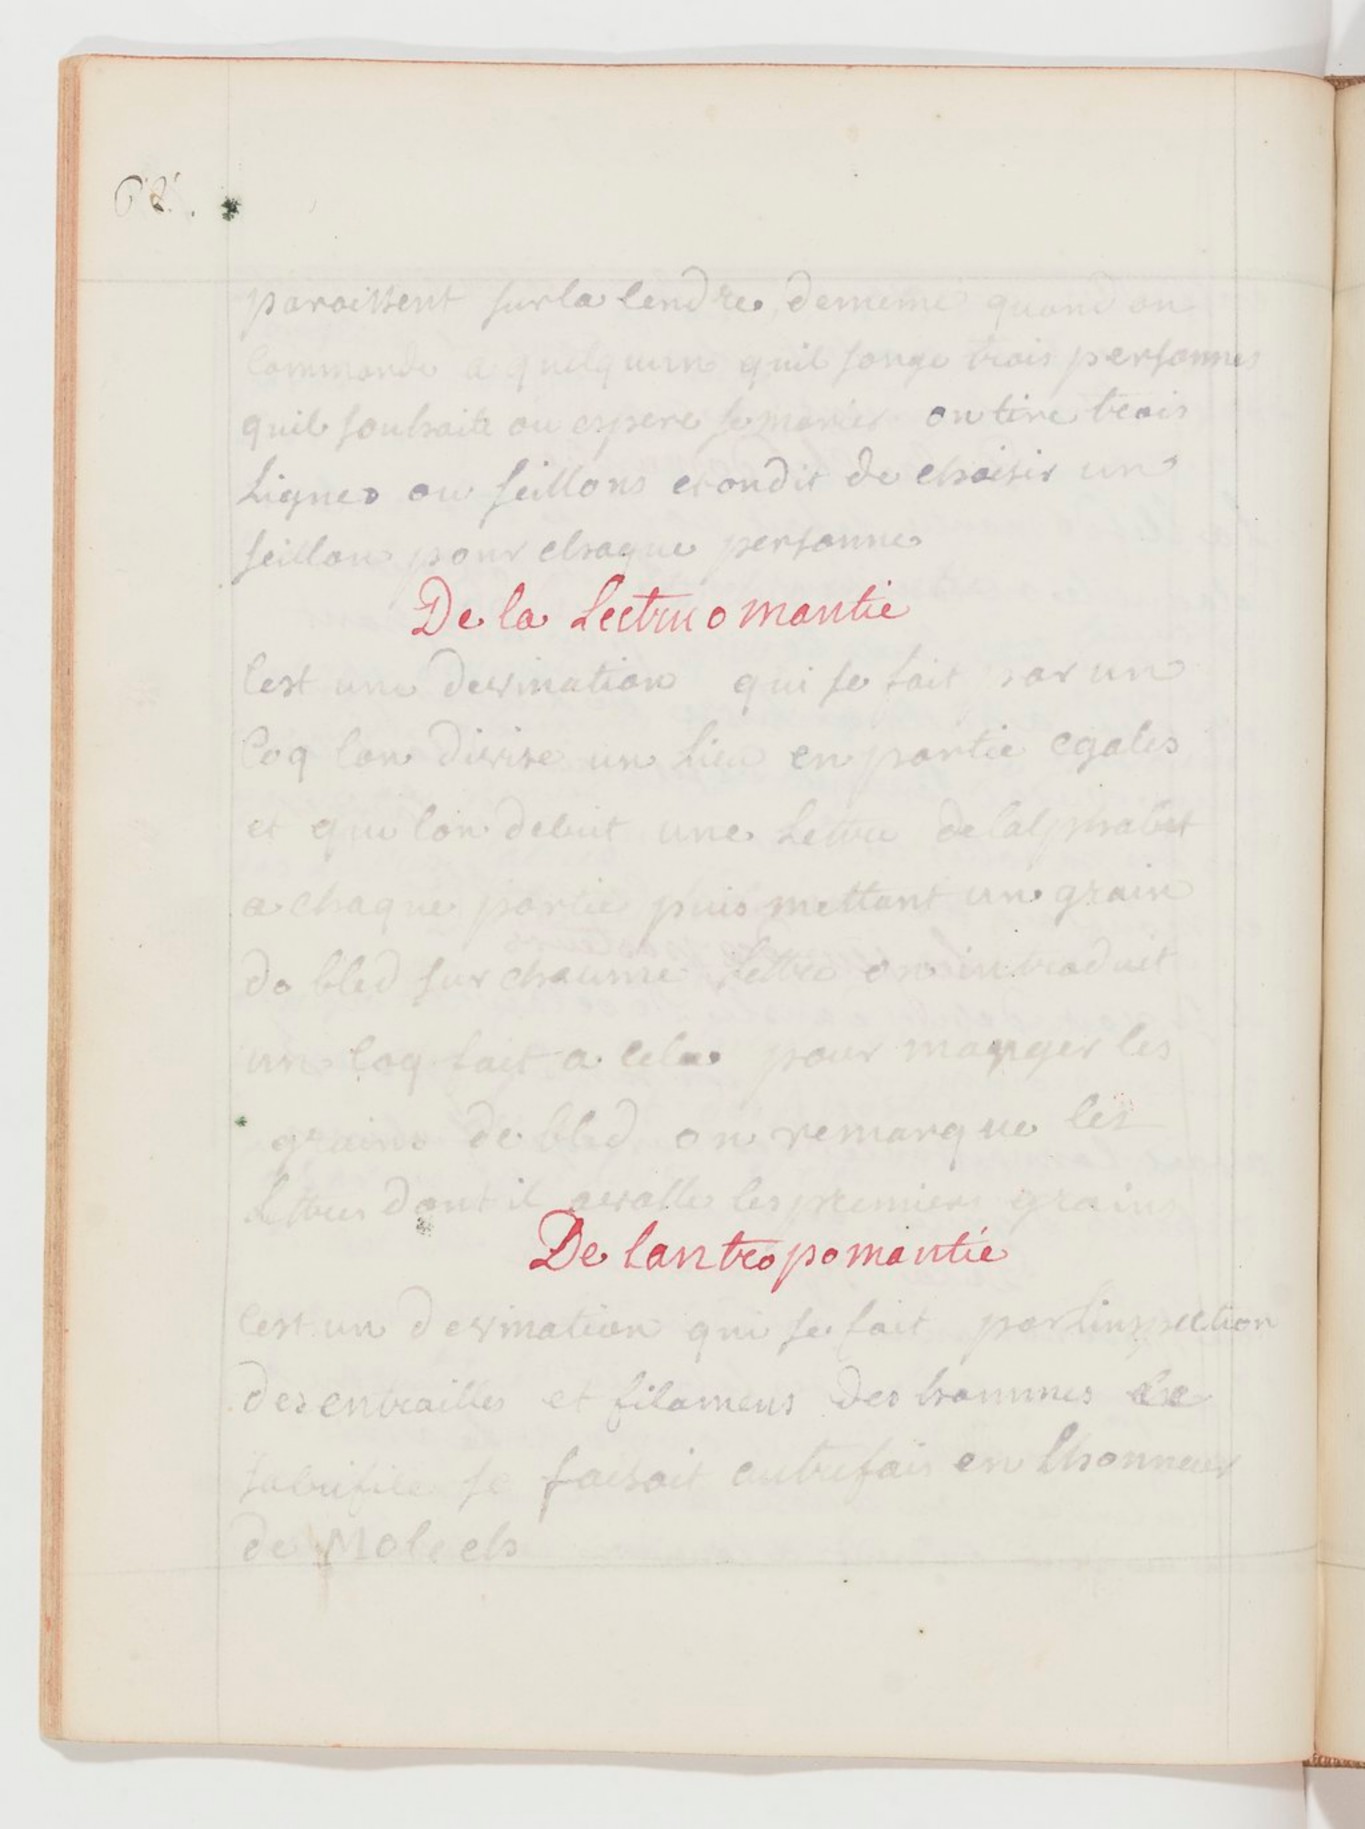 62.
paroissent sur la Cendre, dememe quand on
Commande a quelquun quil songe trois personnes
quil souhaite ou espere se marier on tire trois
Lignes ou seillons et on dit de choisir un
seillon pour chaque personne
De la Lectruomantie
Cest une devination qui se fait par un
Coq lon divise un Lieu en partie egales
et que lon decrit une Lettre de lalphabet
a chaque partie puis mettant un grain
de bled sur chacune Lettre on introduit
un Coq fait a cela pour manger les
grains de bled on remarque les
Lettres dont il avalle les premiers grains
De lantropomantie
Cest un devination qui se fait par linspection
des entrailles et filamens des hommes ce
sacrifice se faisoit autrefois en Lhonneur
de Molech